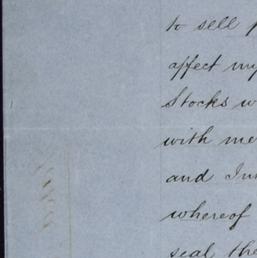 to sell
affect my
Stocks
with me
and
whereof
seal the